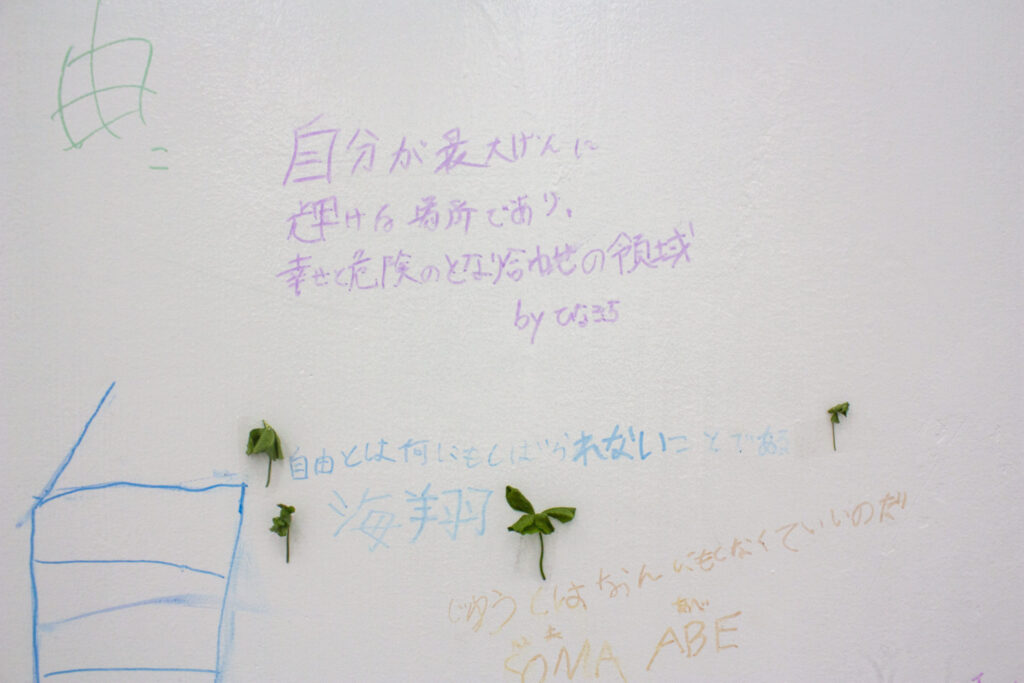 由
=
自分が最大げんに
輝ける場所であり、
幸せと危険のとなり合わせの領域
by ひな
自由とは何にもしばられないことである
海翔
じゆうとはなんにもしなくていいのだ
ABE